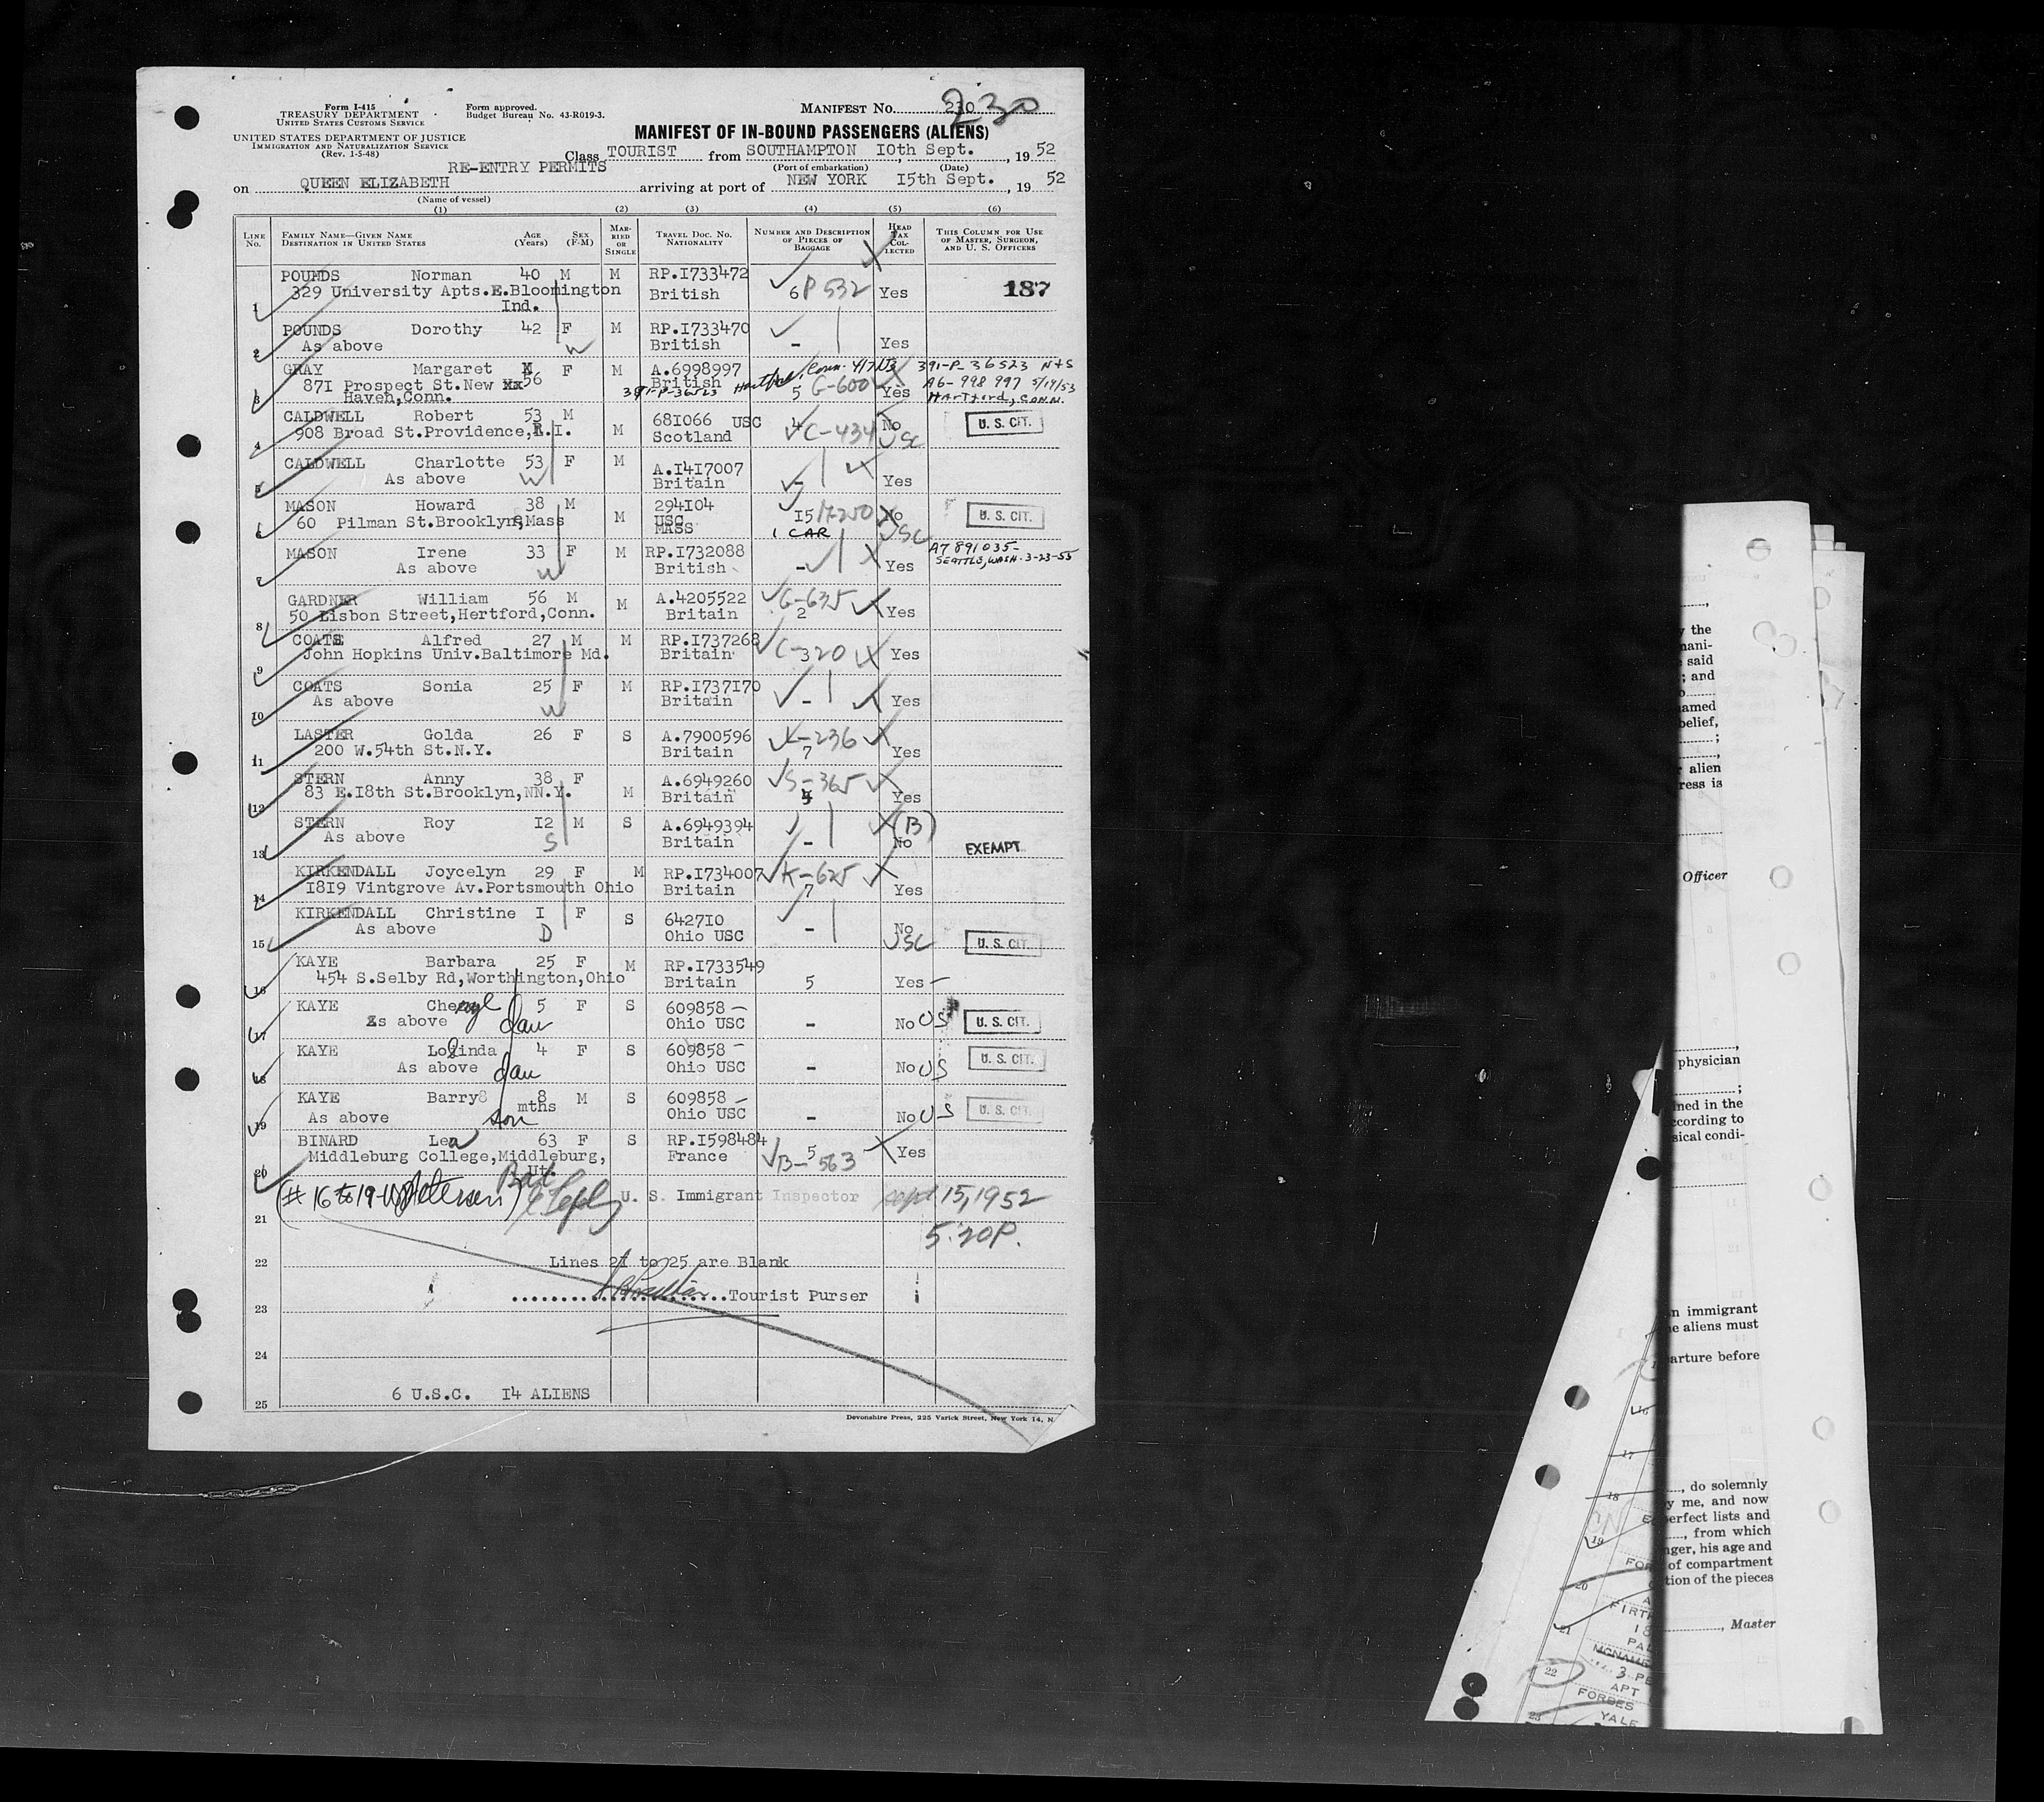 Form I-415
TREASURY DEPARTMENT
UNITED STATES CUSTOMS SERVICE
Form approved.
Budget Bureau No. 43-R019-3.
MANIFEST No. 230
230
UNITED STATES DEPARTMENT OF JUSTICE
IMMIGRATION AND NATURALIZATION SERVICE
(Rev. 1-5-48)
MANIFEST OF IN-BOUND PASSENGERS (ALIENS)
Class TOURIST from SOUTHAMPTON 10th Sept., 1952
RE-ENTRY PERMITS
(Port of embarkation) (Date)
on QUEEN ELIZABETH arriving at port of NEW YORK 15th Sept., 1952
(Name of vessel)
(1) (2) (3) (4) (5) (6)
LINE No. FAMILY NAME—GIVEN NAME DESTINATION IN UNITED STATES AGE (Years) SEX (F-M) MARRIED OR SINGLE TRAVEL DOC. No. NATIONALITY NUMBER AND DESCRIPTION OF PIECES OF BAGGAGE HEAD TAX COLLECTED THIS COLUMN FOR USE OF MASTER, SURGEON, AND U. S. OFFICERS
POUNDS Norman 40 M M RP.I733472
1 329 University Apts.E.Bloomington Ind. British 6 P 532 Yes 187
POUNDS Dorothy 42 F M RP.I733470
2 As above W British - Yes
GRAY Margaret X F M A.6998997 Hartford, Conn. 4/7/53 391-P-36523 N+S
3 871 Prospect St.New xx 56 British 5 G-600 Yes A6-998 997 5/19/53
Haven,Conn. 391-P-36523 HARTFORD, CONN.
CALDWELL Robert 53 M 681066 USC 4 No U. S. CIT.
4 908 Broad St.Providence,R.I. M Scotland C-434 USC
CALDWELL Charlotte 53 F M A.I4I7007
5 As above W Britain - Yes
MASON Howard 38 M 294I04 No U. S. CIT.
6 60 Pilman St.Brooklyne,Mass M USC MASS 15 1 CAR USC
MASON Irene 33 F M RP.I732088 A7 891035-
7 As above W British - Yes SEATTLE, WASH. 3-23-55
GARDNER William 56 M M A.4205522 G-635
8 50 Lisbon Street,Hertford,Conn. Britain 2 Yes
COATS Alfred 27 M M RP.I737268
9 John Hopkins Univ.Baltimore Md. Britain C-320 Yes
COATS Sonia 25 F M RP.I737I70
10 As above W Britain - Yes
LASTER Golda 26 F S A.7900596 K-236
11 200 W.54th St.N.Y. Britain 7 Yes
STERN Anny 38 F A.6949260 S-365
12 83 E.I8th St.Brooklyn,NN.Y. M Britain Yes
STERN Roy I2 M S A.6949394 (B)
13 As above S Britain - No EXEMPT
KIRKENDALL Joycelyn 29 F M RP.I734007 K-625
14 I8I9 Vintgrove Av.Portsmouth Ohio Britain 7 Yes
KIRKENDALL Christine I F S 6427I0
15 As above D Ohio USC - No USC U. S. CIT.
KAYE Barbara 25 F M RP.I733549
16 454 S.Selby Rd,Worthington,Ohio Britain 5 Yes-
KAYE Cheryl 5 F S 609858-
17 As above dau Ohio USC - No US U. S. CIT.
KAYE Lorinda 4 F S 609858-
18 As above dau Ohio USC - No US U. S. CIT.
KAYE Barry8 8 mths M S 609858-
19 As above son Ohio USC - No US U. S. CIT.
BINARD Lea 63 F S RP.I598484 5
20 Middleburg College,Middleburg, Vt. France B-563 Yes
(#16 to 19- Petersen) U. S. Immigrant Inspector Sept 15,1952
21 5:20P.
22 Lines 21 to 25 are Blank
23 Tourist Purser
24
25 6 U.S.C. I4 ALIENS
Devonshire Press, 225 Varick Street, New York 14, N
the
mani-
said
; and
named
belief,
;
alien
ress is
Officer
physician
;
ned in the
cording to
sical condi-
n immigrant
e aliens must
arture before
16
17
, do solemnly
18
y me, and now
perfect lists and
, from which
19
nger, his age and
of compartment
tion of the pieces
20
FIRTH
21
, Master
MCNAM
22
3 PE
APT
FORBES
23
YALE